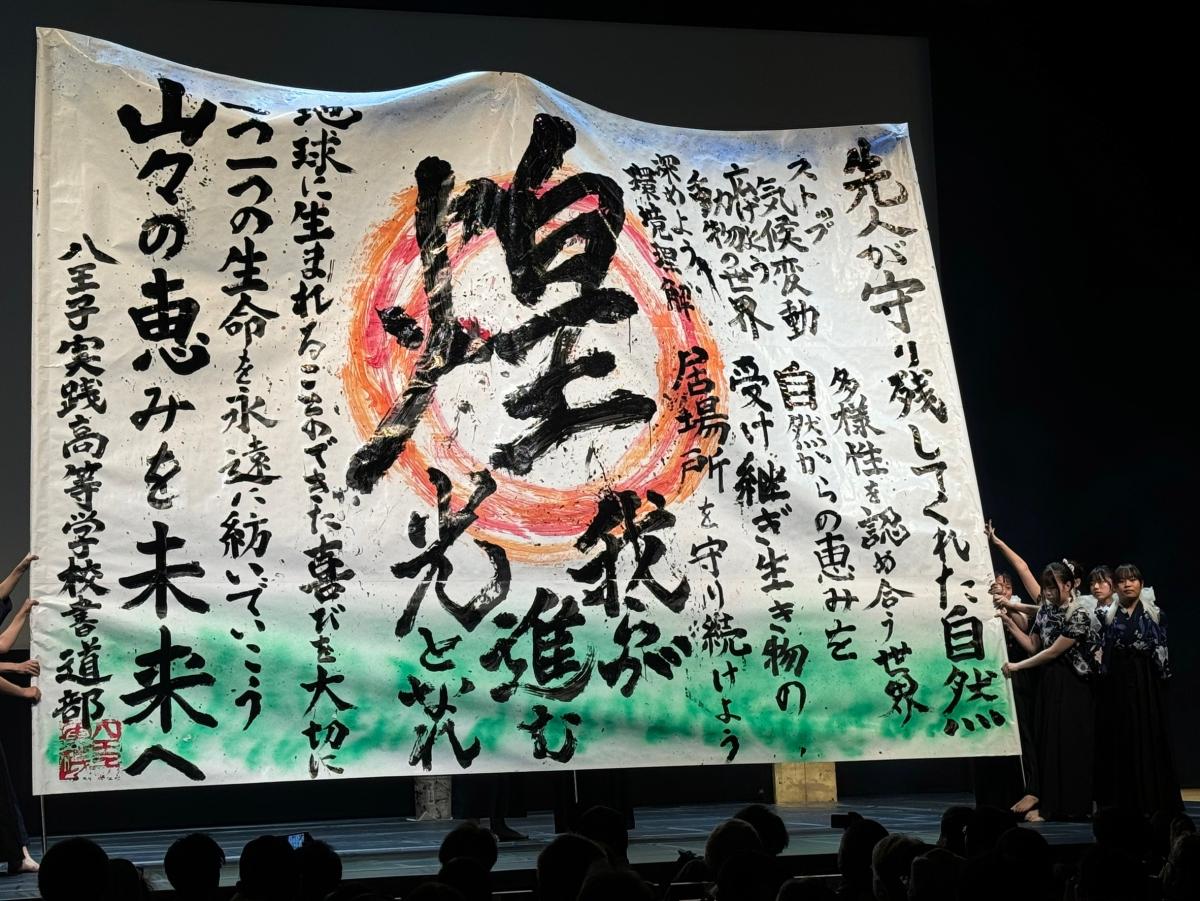 先人が守り残してくれた自然
多様性を認め合う世界
ストップ
気候変動
自然からの恵みを
広げよう
動物の世界
受け継ぎ生き物の
深めよう
環境理解
居場所を守り続けよう
煌
我が
進む
光となれ
地球に生まれることのできた喜びを大切に
一つ一つの生命を永遠に紡いでいこう
山々の恵みを未来へ
八王子実践高等学校書道部